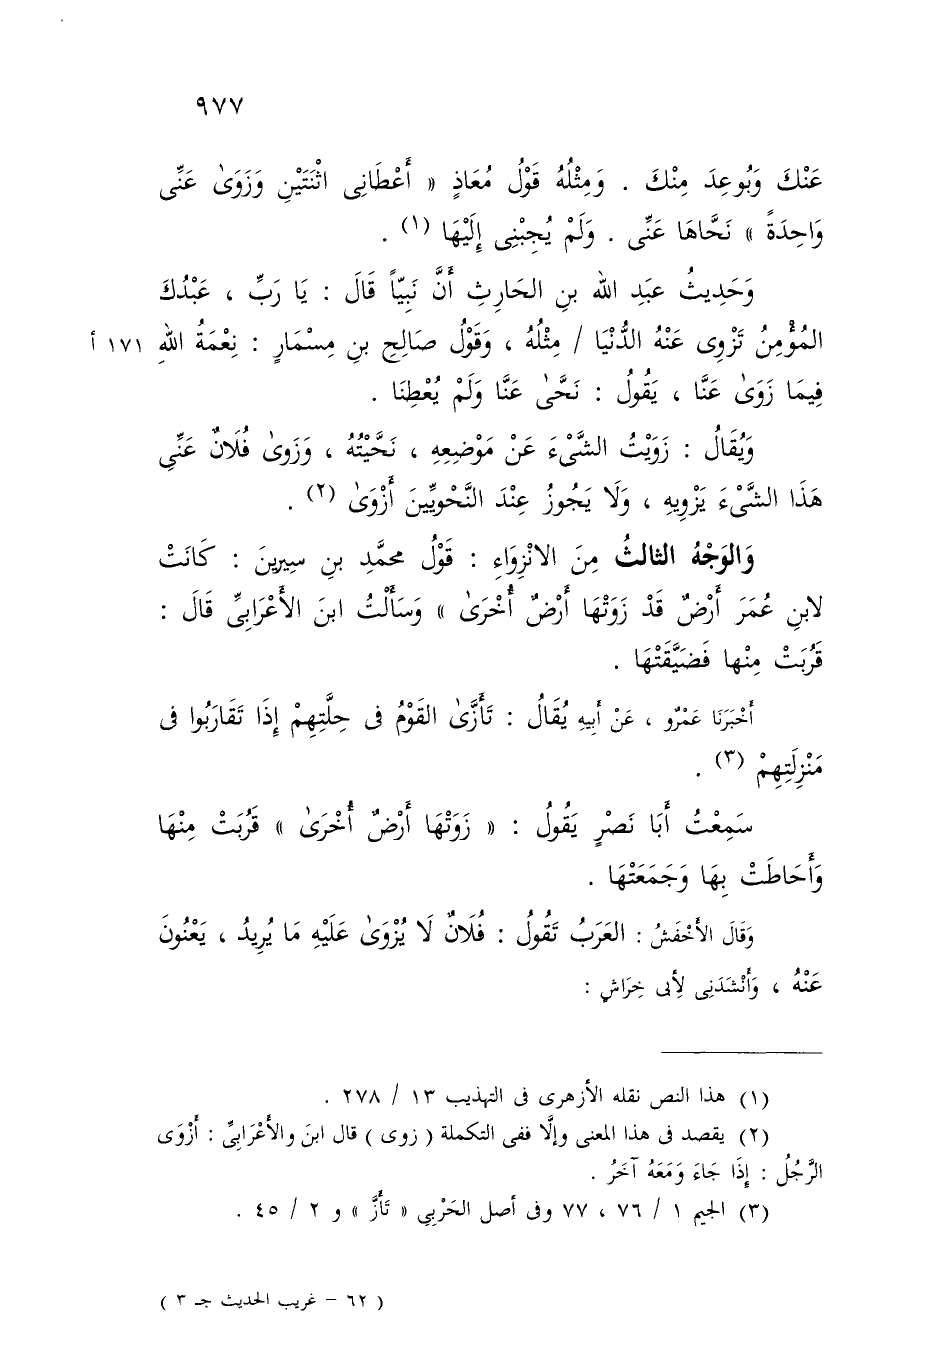 ٩٧٧
عَنْكَ وَبُوعِدَ مِنْكَ . وَمِثْلُهُ قَوْلُ مُعَاذٍ « أَعْطَانِى اثْنَتَيْنِ وَزَوَىٰ عَنِّى
وَاحِدَةً » نَحَّاهَا عَنِّى . وَلَمْ يُجِبْنِى إِلَيْهَا (١) .
وَحَدِيثُ عبَدِ الله بنِ الحَارِثِ أَنَّ نَبِيّاً قَالَ : يَا رَبِّ ، عَبْدُكَ
المُؤْمِنُ تَزْوِى عَنْهُ الدُّنْيَا / مِثْلُهُ ، وَقَوْلُ صَالِحِ بنِ مِسْمَارٍ : نِعْمَةُ اللهِ ١٧١ أ
فِيمَا زَوَىٰ عَنَّا ، يَقُولُ : نَحَّىٰ عَنَّا وَلَمْ يُعْطِنَا .
وَيُقَالُ : زَوَيْتُ الشَّىْءَ عَنْ مَوْضِعِهِ ، نَحَّيْتُهُ ، وَزَوىٰ فُلَانٌ عَنِّى
هَذَا الشَّىْءَ يَزْوِيهِ ، وَلَا يَجُوزُ عِنْدَ النَّحْوِيِّينَ أَزْوَىٰ (٢) .
وَالوَجْهُ الثالثُ مِنَ الانْزِوَاءِ : قَوْلُ محمَّدِ بنِ سِيرِينَ : كَانَتْ
لابنِ عُمَرَ أَرْضٌ قَدْ زَوَتْهَا أَرْضٌ أُخْرَىٰ » وَسَأَلْتُ ابنَ الأَعْرَابِىِّ قَالَ :
قَرُبَتْ مِنْها فَضَيَّقَتْهَا .
أَخْبَرَنَا عَمْرٌو ، عَنْ أَبِيهِ يُقَالُ : تَأَزَّىٰ القَوْمُ فى حِلَّتِهِمْ إِذَا تَقَارَبُوا فى
مَنْزِلَتِهِمْ (٣) .
سَمِعْتُ أَبَا نَصْرٍ يَقُولُ : « زَوَتْهَا أَرْضٌ أُخْرَىٰ » قَرُبَتْ مِنْهَا
وَأَحَاطَتْ بِهَا وَجَمَعَتْهَا .
وَقَالَ الأَخْفَشُ : العَرَبُ تَقُولُ : فُلَانٌ لَا يُزْوَىٰ عَلَيْهِ مَا يُرِيدُ ، يَعْنُونَ
عَنْهُ ، وَأَنْشَدَنِى لِأَبى خِرَاشٍ :
(١) هذا النص نقله الأزهرى فى التهذيب ١٣ / ٢٧٨ .
(٢) يقصد فى هذا المعنى وإلَّا ففى التكملة ( زوى ) قال ابنَ والأَعْرَابىِّ : أَزْوَى
الرَّجُلُ : إِذَا جَاءَ وَمَعَهُ آخَرُ .
(٣) الجيم ١ / ٧٦ ، ٧٧ وفى أصل الحَرْبِي « تَأَزَّ » و ٢ / ٤٥ .
( ٦٢ - غريب الحديث جـ ٣ )